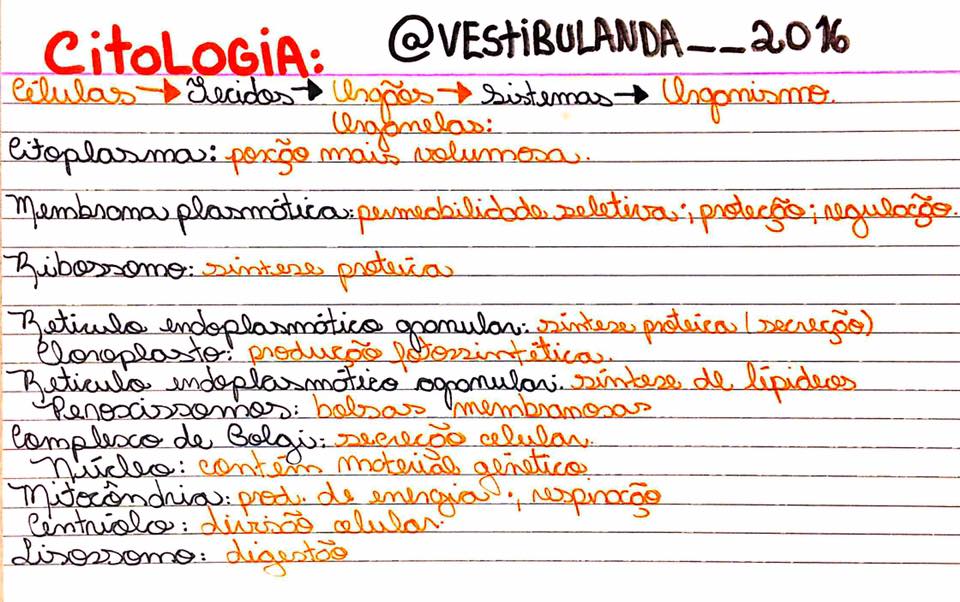 CitoLOGiA: @VEStiBULANDA__2016
Células → Tecidos → Orgãos → Sistemas → Organismo.
Organelas:
Citoplasma: porção mais volumosa.
Membrana plasmática: permeabilidade seletiva; proteção; regulação.
Ribossomo: síntese proteica
Retículo endoplasmático granular: síntese proteica (secreção)
Cloroplasto: produção fotossintética.
Retículo endoplasmático agranular: síntese de lípideos
Peroxissomos: bolsas membranosas
Complexo de Golgi: secreção celular.
Núcleo: contém material genético
Mitocôndria: prod. de energia; respiração
Centríolo: divisão celular.
Lisossomo: digestão